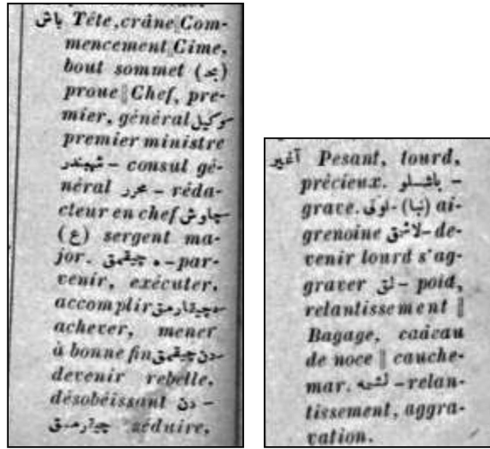 باش Tête, crâne Com-
mencement ‖ Cime,
bout sommet (بحر)
proue ‖ Chef, pre-
mier, général وكيل
premier ministre
شهبندر – consul gé-
néral محرر – réda-
cteur en chef چاوش
(ع) sergent ma-
jor. ه چيقمق – par-
venir, exécuter,
accomplir ه چيقارمق
achever, mener
à bonne fin دن چيقمق
devenir rebelle,
désobéissant دن –
چيقارمق séduire,
آغير Pesant, lourd,
précieux. باشلو –
grave. (نبا) اوتى – ai-
gremoine لاشمق – de-
venir lourd s'ag-
graver لق – poid,
relantissement ‖
Bagage, cadeau
de noce ‖ cauche-
mar. – relan-
tissement, aggra-
vation.